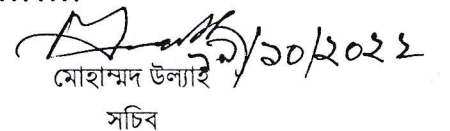 /১০/২০২২
মোহাম্মদ উল্যাহ
সচিব